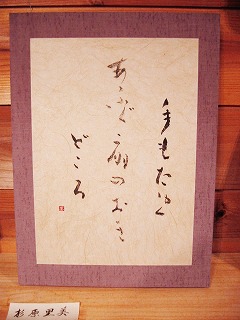 手もたゆく
あふぐ扇のおき
どころ
杉原里美